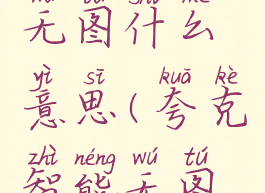 无图什么
yì sī kuā kè
意思(夸克
zhì néng wú tú
智能无图